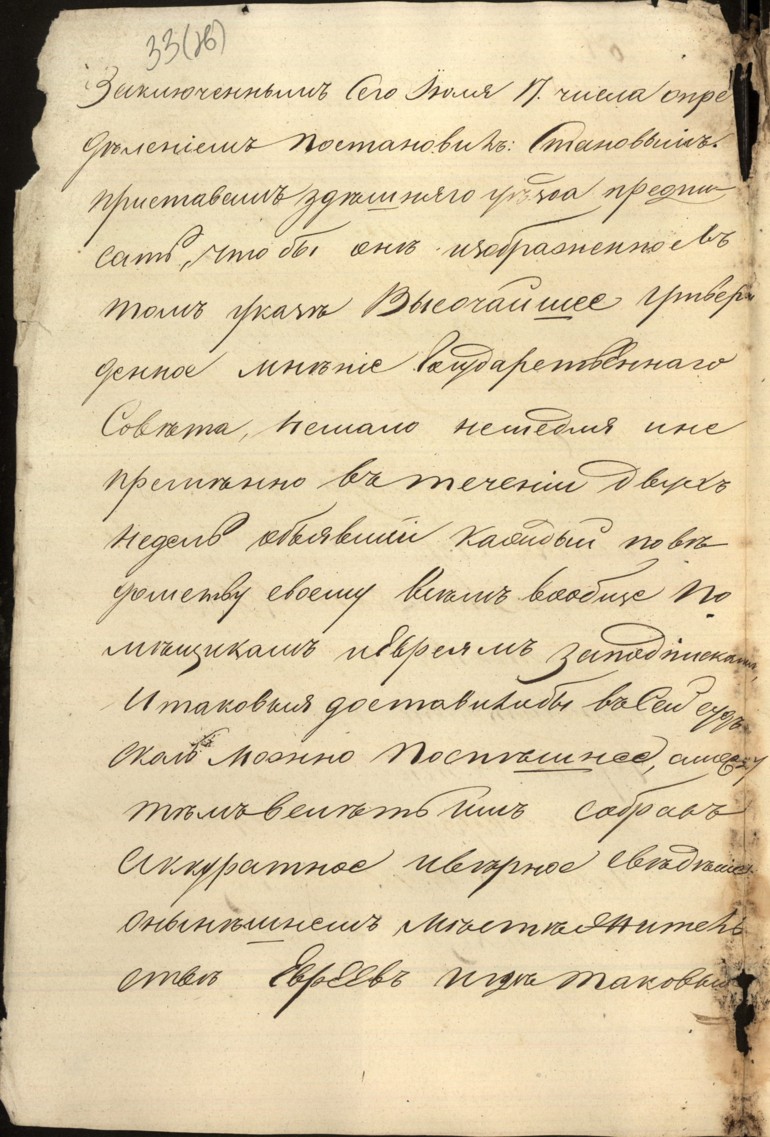 33 (об)
Заключеннымъ Сего Іюля 17. числа опре
дѣленіемъ постановилъ: Становымъ
приставамъ здѣшняго уѣзда предпи
сать, что бы онѣ изображенное въ
томъ указѣ Высочайшее утверж
денное мнѣніе Государственнаго
Совѣта, немало немедля ине
премѣнно въ теченіи двухъ
недель объявили каждый повѣ
домству своему Всѣмъ вообще По
мѣщикамъ иЕвреямъ заподписками,
И таковыя доставилибы въ Сей судъ
сколь можно поспѣшнее, между
тѣмъ велѣть имъ собравъ
Аккуратное ивѣрное свѣдѣніе
онынѣшнемъ мѣстѣ житель
ствѣ Евреевъ игдѣ таковыя